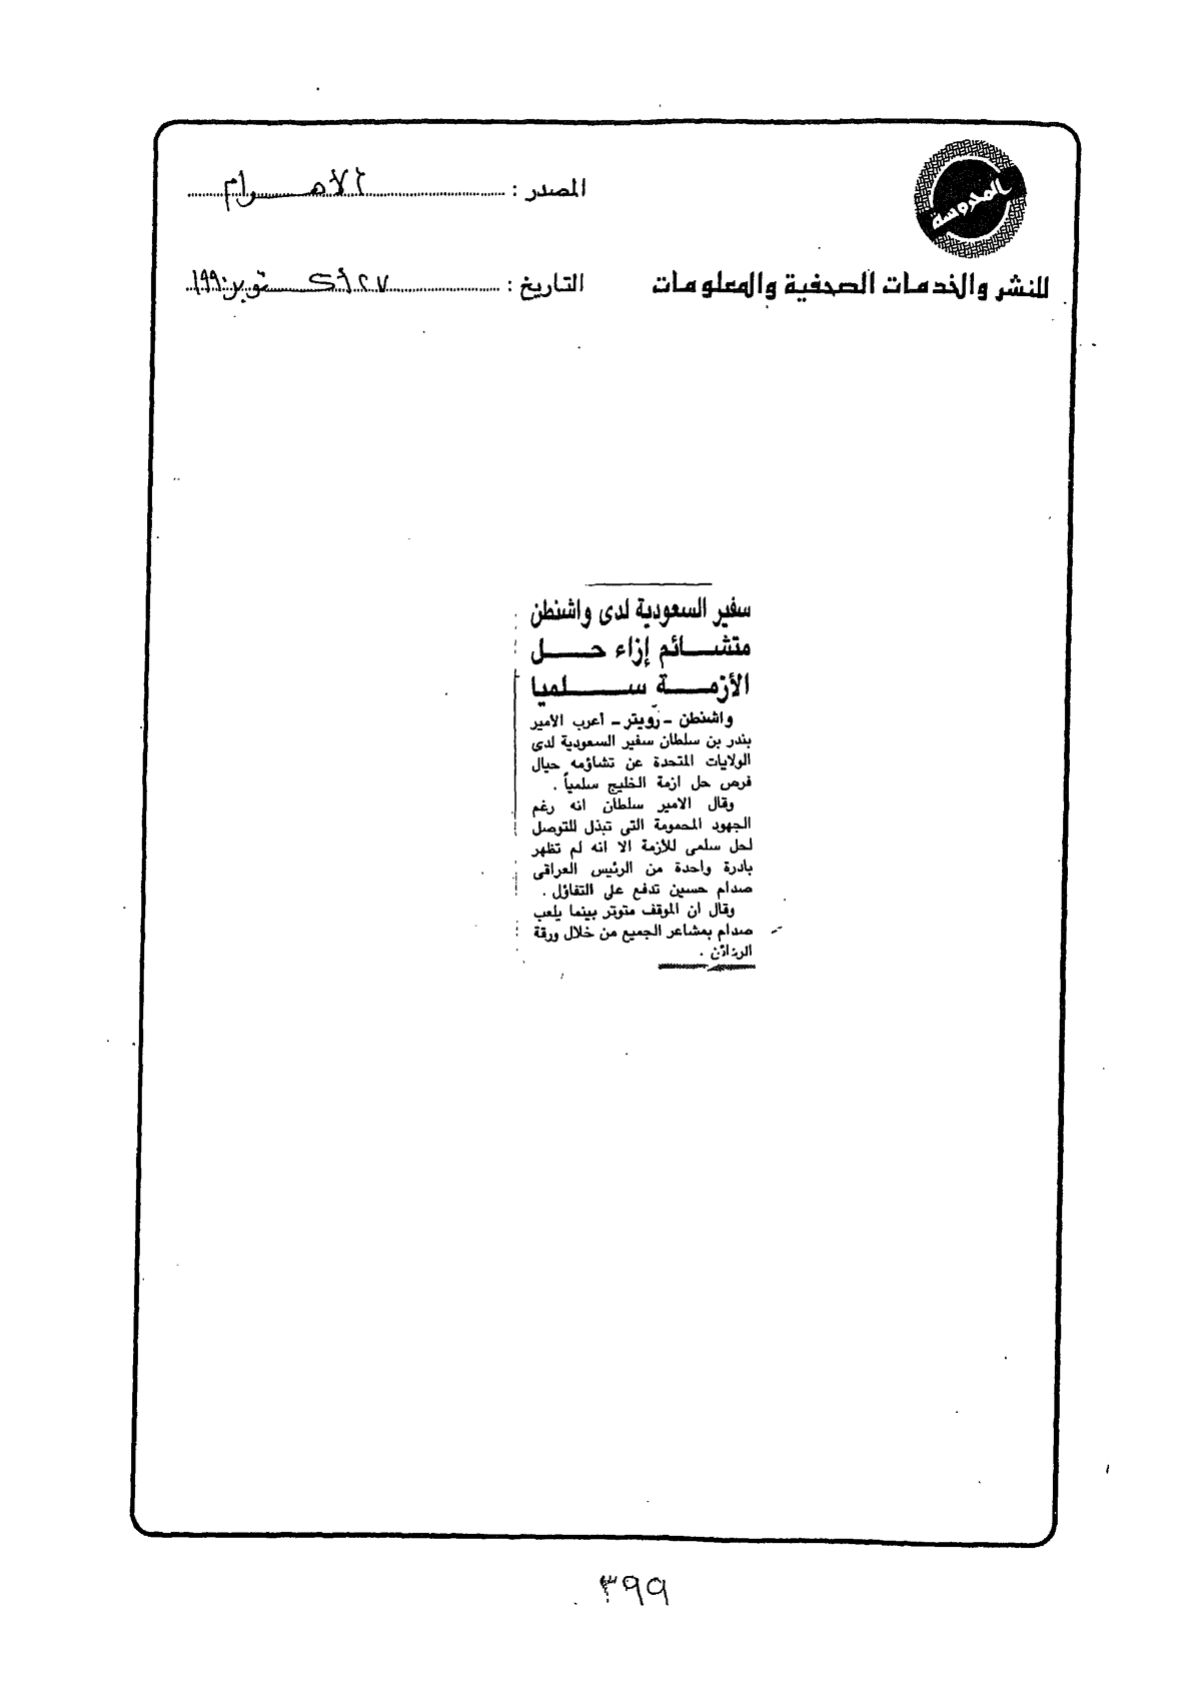 المحروسة
للنشر والخدمات الصحفية والمعلومات
المصدر : الأهرام
التاريخ : ٢٧ أكتوبر ١٩٩٠
سفير السعودية لدى واشنطن
متشائم إزاء حل
الأزمة سلميا
واشنطن - رويتر - أعرب الامير
بندر بن سلطان سفير السعودية لدى
الولايات المتحدة عن تشاؤمه حيال
فرص حل ازمة الخليج سلمياً .
وقال الامير سلطان انه رغم
الجهود المحمومة التى تبذل للتوصل
لحل سلمى للأزمة الا انه لم تظهر
بادرة واحدة من الرئيس العراقى
صدام حسين تدفع على التفاؤل .
وقال ان الموقف متوتر بينما يلعب
صدام بمشاعر الجميع من خلال ورقة
الرهائن .
٣٩٩